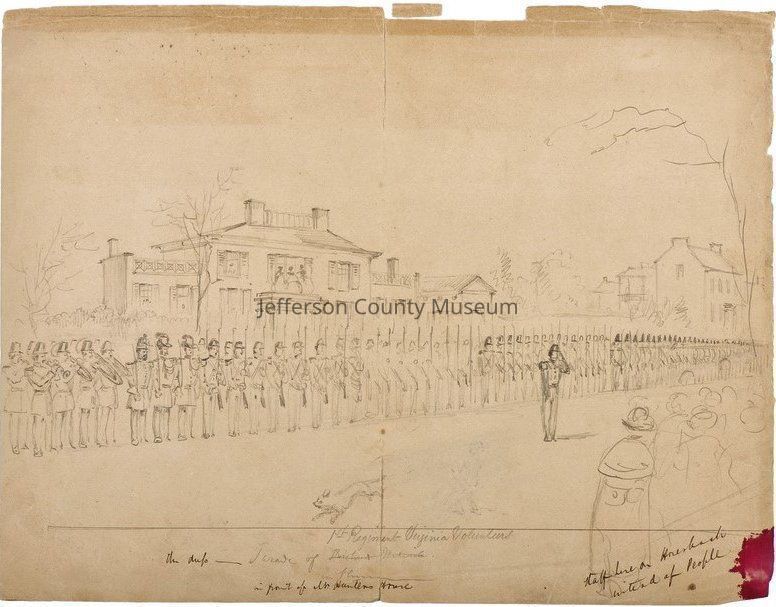 Jefferson County Museum
1st Regiment Virginia Volunteers
the dress — Parade of
in front of Mr Hunters House
Staff here on Horseback
instead of People